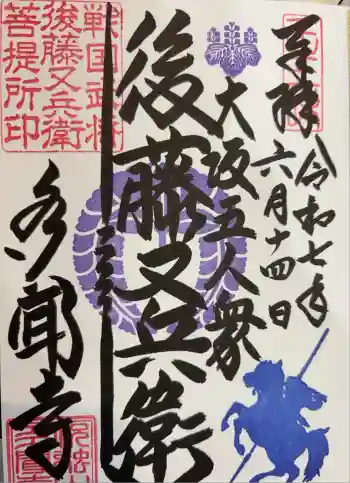 奉拝
令和七年
六月十四日
大阪五人衆
後藤又兵衛
多聞寺
戦国武将
後藤又兵衛
菩提所印